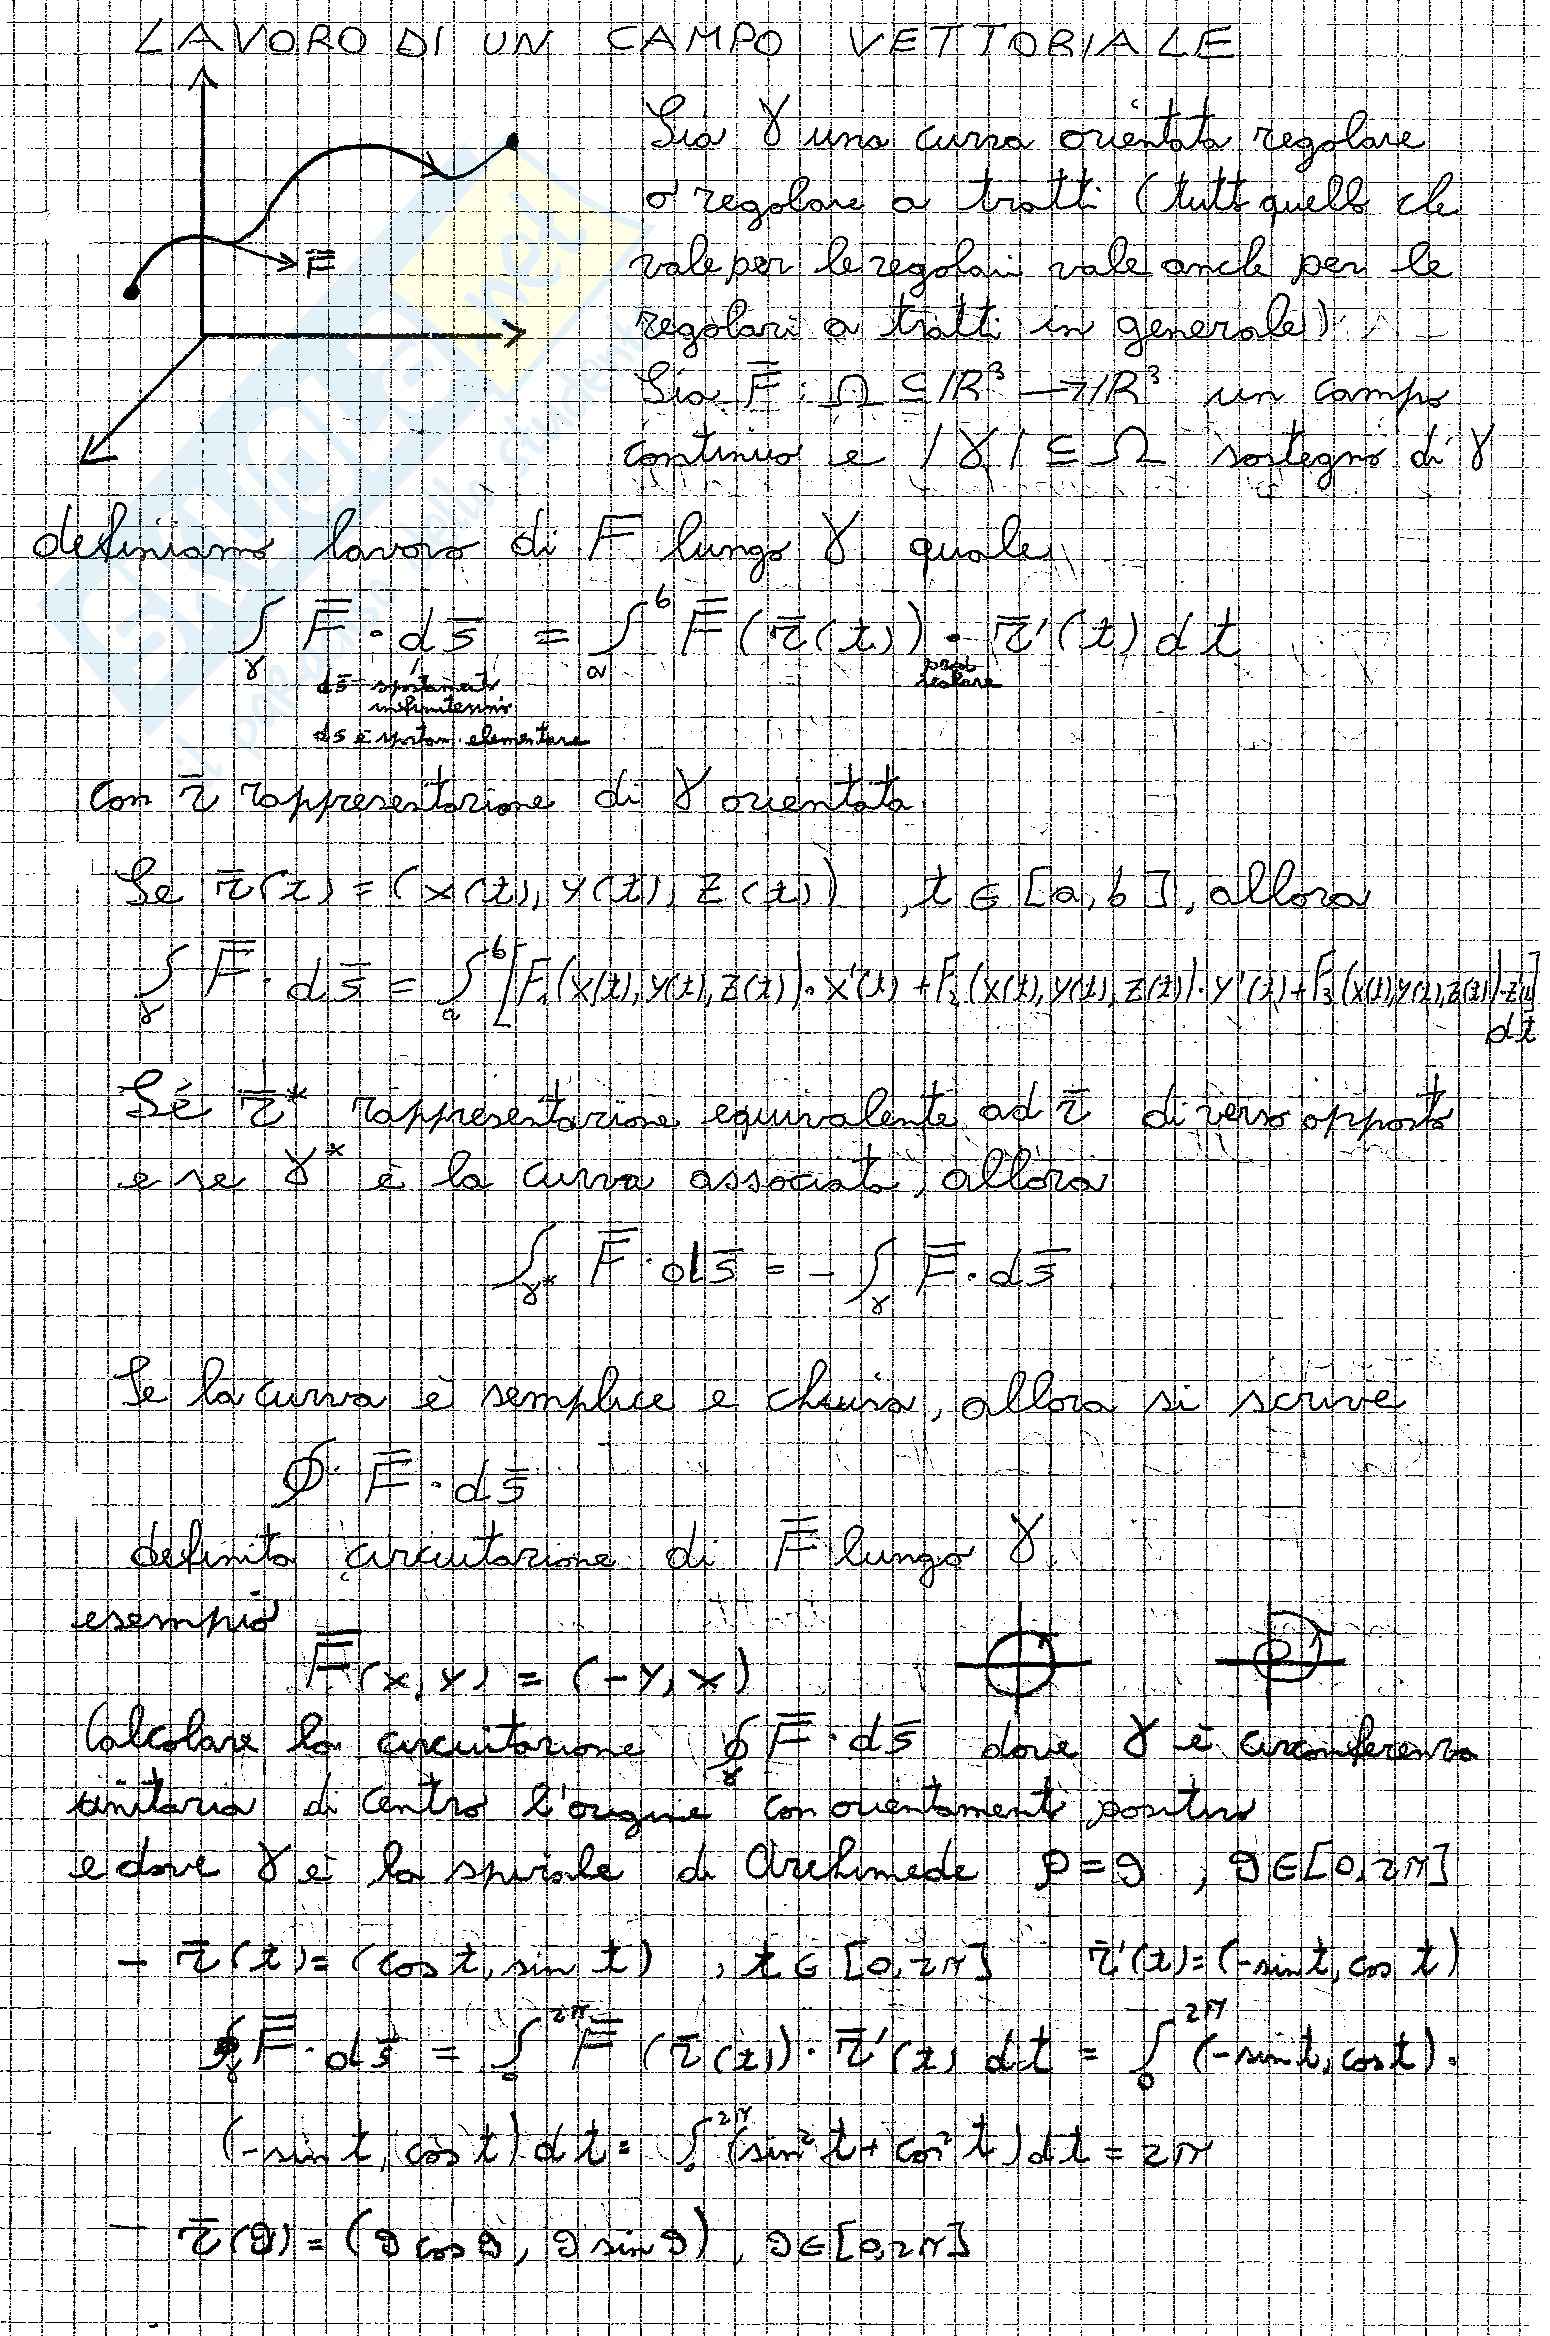 LAVORO DI UN CAMPO VETTORIALE
Sia γ una curva orientata regolare
o regolare a tratti (tutto quello che
vale per le regolari vale anche per le
regolari a tratti in generale)
Sia F̄ : Ω ⊆ ℝ³ → ℝ³ un campo
continuo e |γ| ⊆ Ω sostegno di γ
F̄
definiamo lavoro di F lungo γ quale
∫_γ F̄ · ds̄ = ∫_a^b F̄(r̄(t)) · r̄'(t) dt
ds̄ spostamento
infinitesimo
prod
scalare
ds è spostam. elementare
con r̄ rappresentazione di γ orientata
Se r̄(t) = (x(t), y(t), z(t)) , t ∈ [a, b], allora
∫_γ F̄ · ds̄ = ∫_a^b [F₁(x(t), y(t), z(t)) · x'(t) + F₂(x(t), y(t), z(t)) · y'(t) + F₃(x(t), y(t), z(t)) · z'(t)]
dt
Se r̄* rappresentazione equivalente ad r̄ di verso opposto
e se γ* è la curva associata, allora
∫_γ* F̄ · ds̄ = - ∫_γ F̄ · ds̄
Se la curva è semplice e chiusa, allora si scrive
∮ F̄ · ds̄
definita circuitazione di F̄ lungo γ
esempio
F̄(x, y) = (-y, x)
Calcolare la circuitazione ∮_γ F̄ · ds̄ dove γ è circonferenza
unitaria di centro l'origine con orientamento positivo
e dove γ è la spirale di Archimede ρ = θ , θ ∈ [0, 2π]
- r̄(t) = (cos t, sin t) , t ∈ [0, 2π] r̄'(t) = (-sin t, cos t)
∮_γ F̄ · ds̄ = ∫_0^2π F̄(r̄(t)) · r̄'(t) dt = ∫_0^2π (-sin t, cos t) ·
(-sin t, cos t) dt = ∫_0^2π (sin² t + cos² t) dt = 2π
- r̄(θ) = (θ cos θ, θ sin θ), θ ∈ [0, 2π]